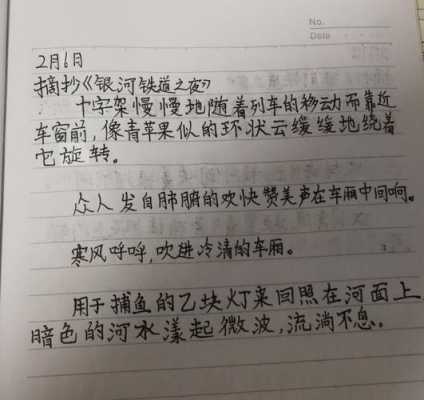 No.
Date
2月6日
摘抄《银河铁道之夜》
十字架慢慢地随着列车的移动而靠近
车窗前,像青苹果似的环状云缓缓地绕着
它旋转。
众人发自肺腑的欢快赞美声在车厢中间响。
寒风呼呼,吹进冷清的车厢。
用于捕鱼的乙块灯来回照在河面上
暗色的河水漾起微波,流淌不息。